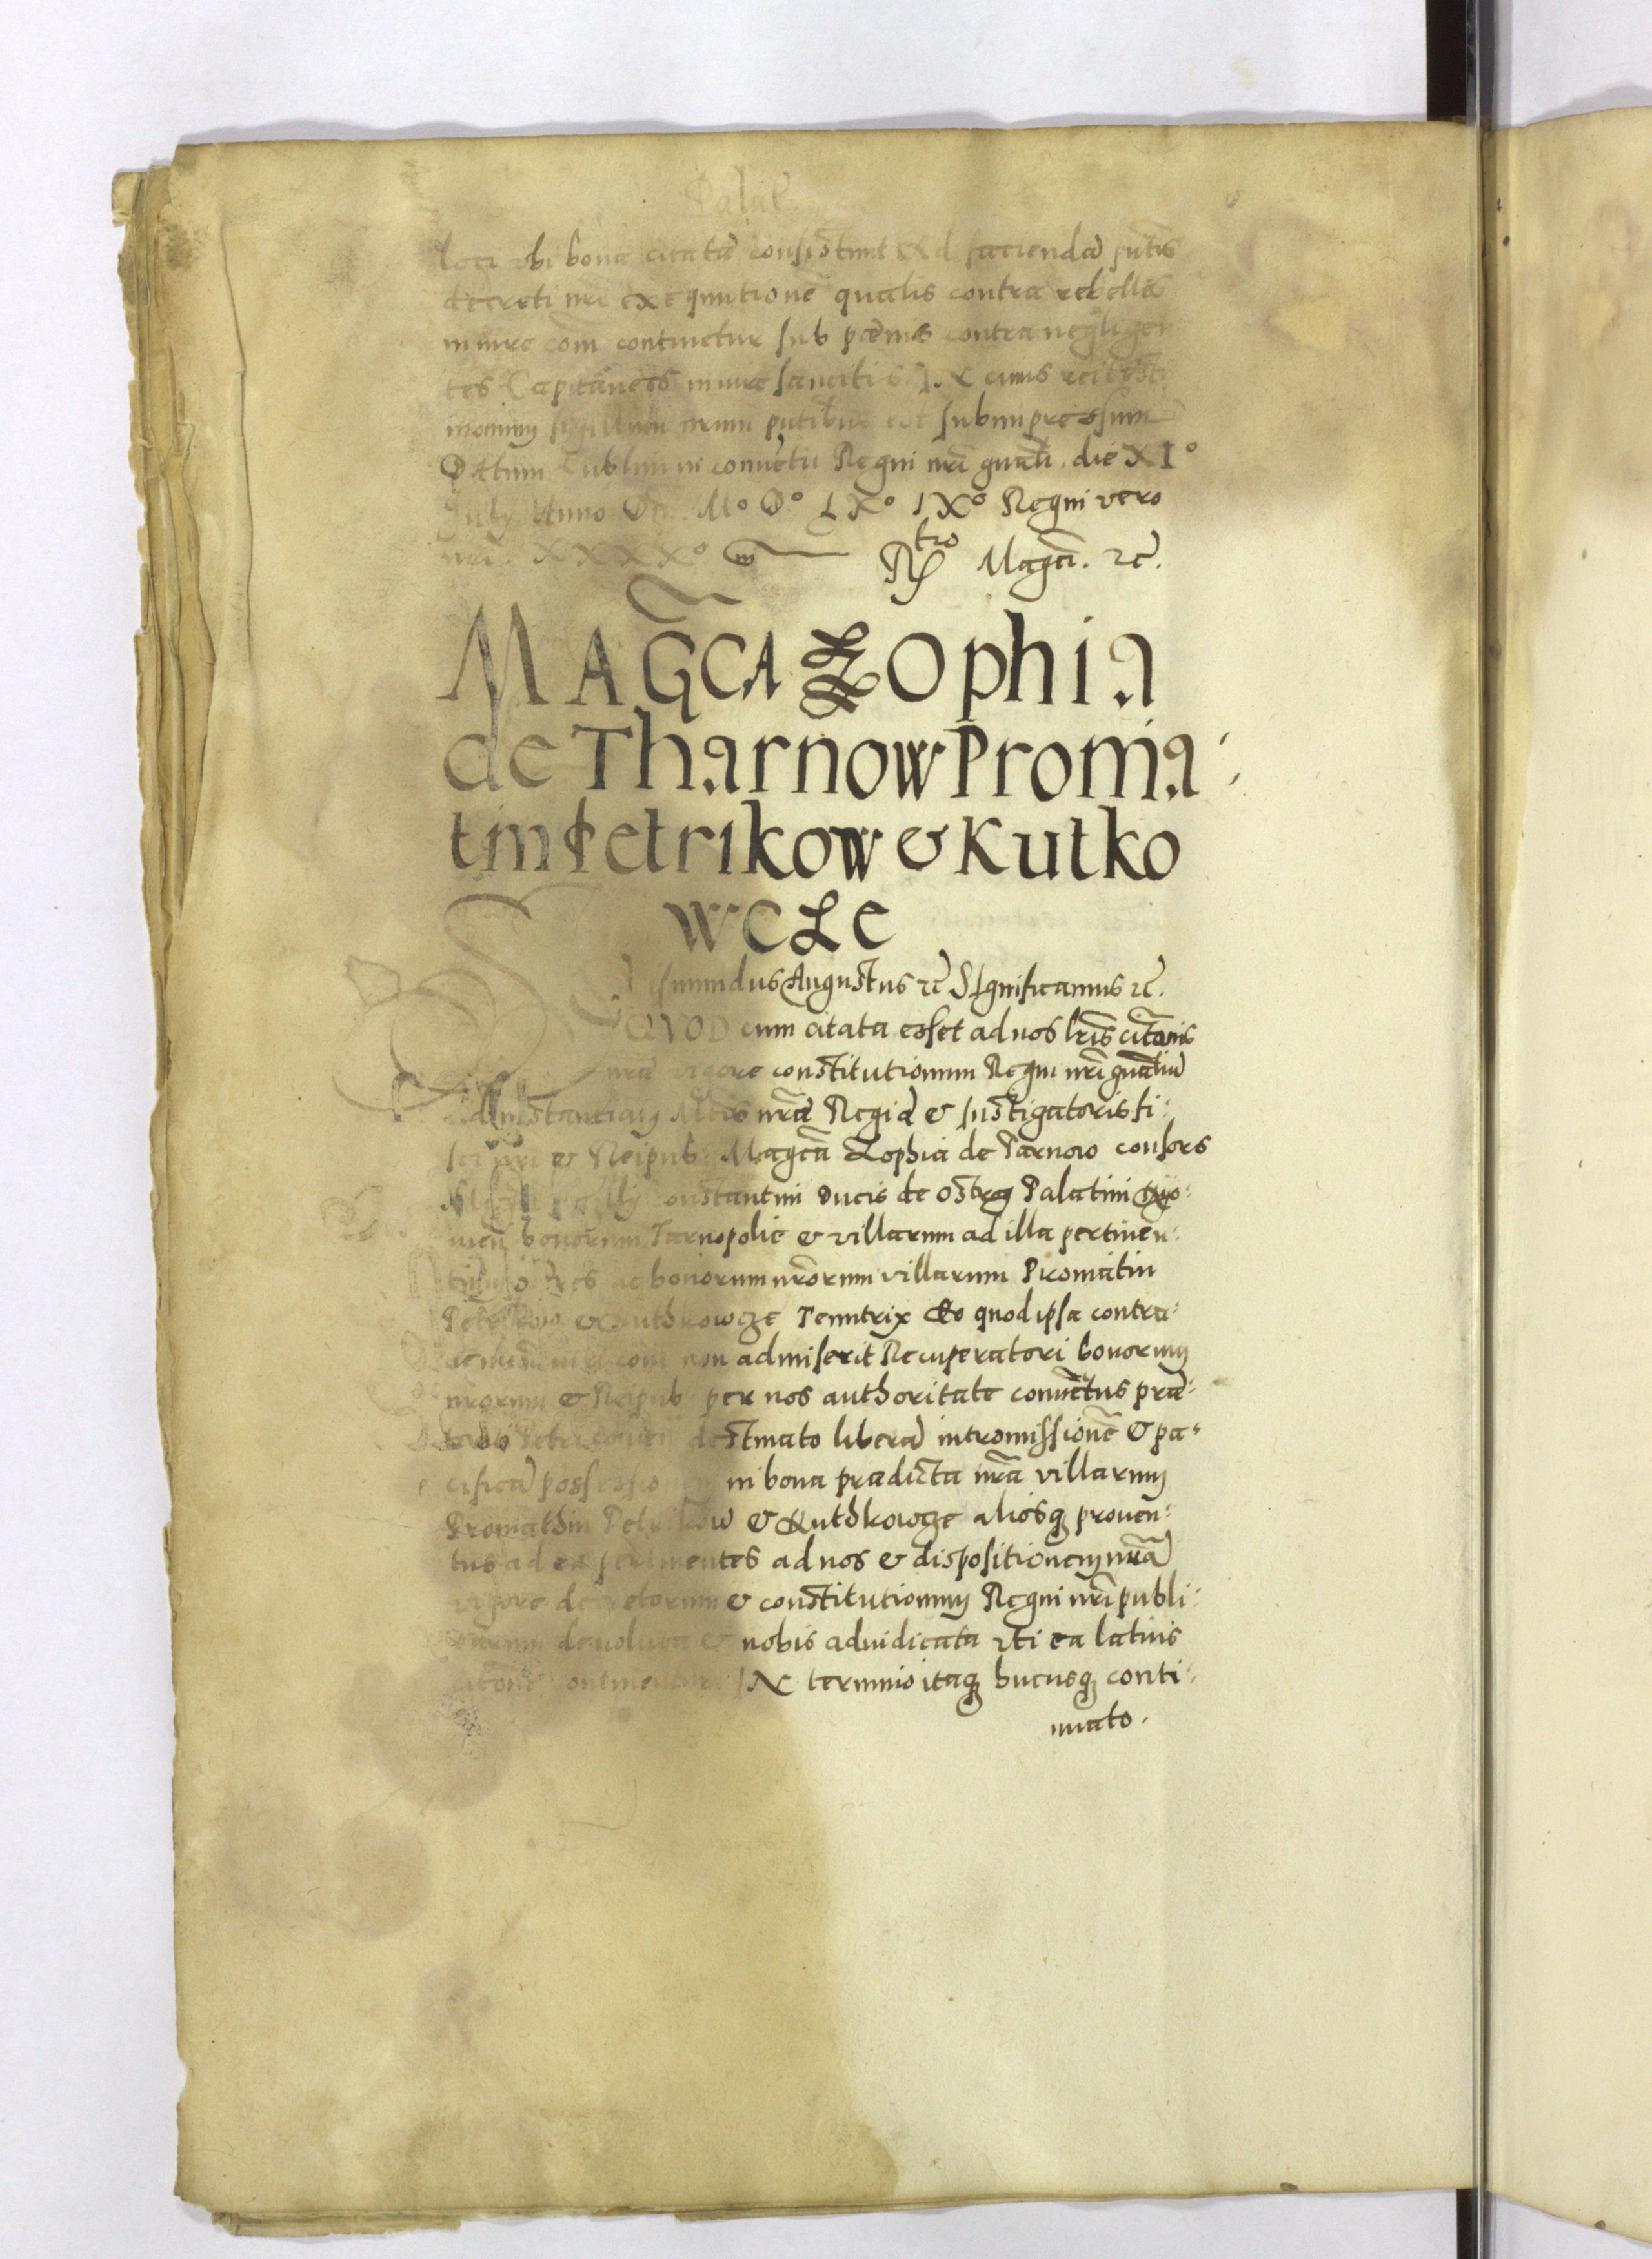 Palat
loci ubi bona citata consistunt Ad faciendã pntis
decreti nri exequutionẽ qualis contra rebelles
in iure com̃ continetur sub pœnis contra negligen
tes Capitaneos in iure sancitis IN cuius rei testi
monium sigillum nrum pntibus est subimpressum
Datum Lublini in conuẽtu Regni nri gnãli die XIº
July Anno Dñi Mº Dº LXº IXº Regni vero
nri. XXXXº Rtro Magcã. rc̃.
MAG̃CA ZOphia
de Tharnow Proma:
tin Petrikow & Kutko
wcze
Sigismundus Augustus rc̃ SIgnificamus rc̃.
QVOD cum citata esset ad nos lris citãonis
nrã vigore constitutionum Regni nri gnãliũ
Ad instantiam Mtis nrã Regiã & Instigatoris fi:
sci nri & Reipub: Magcã Zophia de Tarnow consors
Constantini Ducis de Ostrog Palatini Kijo:
uien bonorum Tarnopolie & villarum ad illa pertinen:
ac bonorum nrorum villarum Promatin
Petrikow & Kuthkowcze Tenutrix Eo quod ipsa contra:
non admiserit Recuperatori bonorum
nrorum & Reipub per nos authoritate conuẽtus præ:
destinato liberã intromissionẽ & pa:
cificã possessionem in bona prædicta nrã villarum
Promathin Petrikow & Kuthkowcze aliosq prouen:
tus ad ea pertinentes ad nos & dispositionem nrã
vigore decretorum & constitutionum Regni nri publi:
carum deuoluta & nobis adiudicata uti ea latius
citãone continentur IN termino itaq hucusq conti:
nuato.